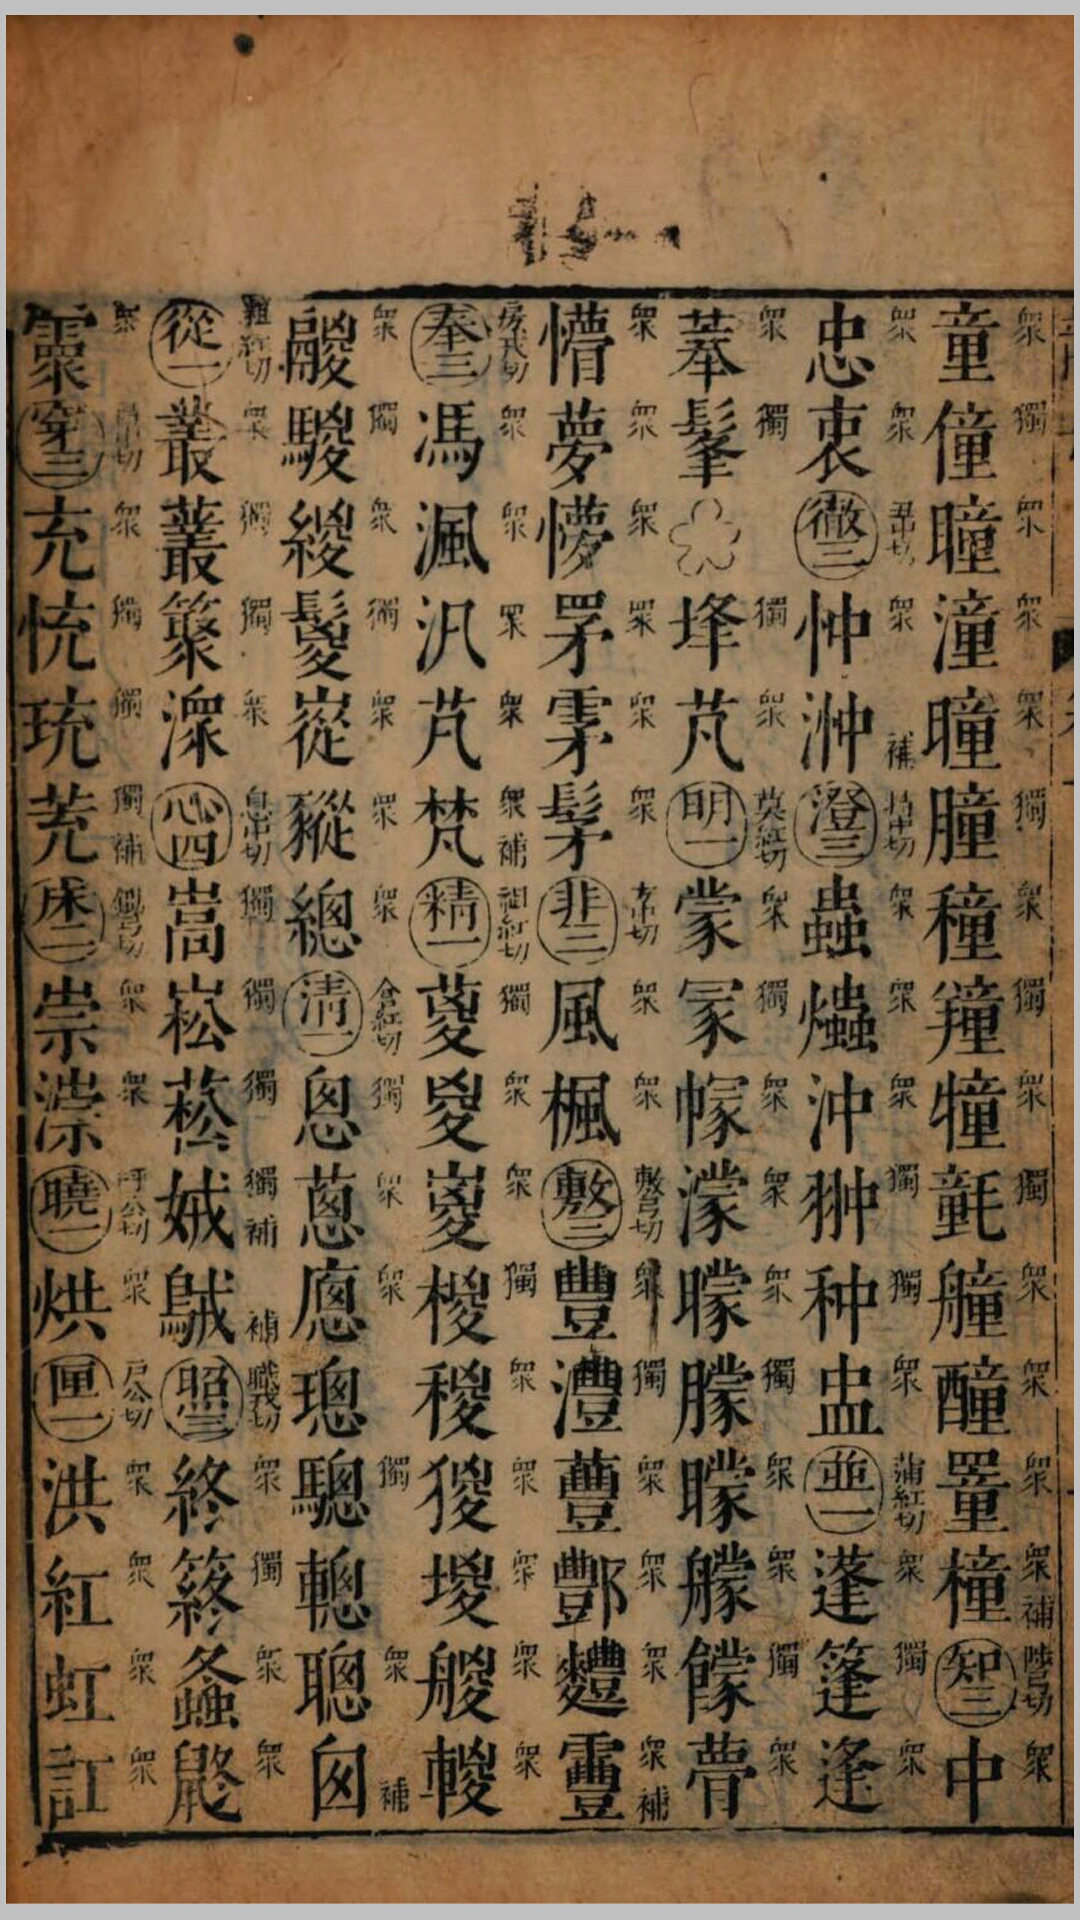 童衆僮獨瞳衆潼衆曈衆朣獨穜衆獨犝衆氃獨艟衆衆罿衆橦衆補知三陟弓切中衆
忠衆衷衆徹三丑中切忡衆浺補澄三持中切蟲衆爞衆沖衆翀獨种獨盅衆並一蒲紅切蓬衆篷獨逢衆
菶衆髼獨埄獨芃衆明一莫紅切蒙衆冡獨幪衆濛衆曚衆朦獨矇衆艨衆饛獨瞢衆
懵衆夢衆懜衆罞衆雺衆髳衆非三方中切風衆楓衆敷三敷弓切豐衆灃獨蘴衆酆衆麷衆靊衆補
奉三房戎切馮衆渢衆汎衆芃衆梵衆補精一祖紅切葼獨㚇衆嵏衆椶獨稯衆猣衆㙡衆艐衆衆
鬷衆騣獨緵衆鬉獨嵷衆豵衆總衆清一倉紅切怱獨蔥衆衆璁驄獨聰衆囪補
從一徂紅切叢衆䕺獨獨潀衆心四息中切嵩獨崧獨菘獨娀獨補駥補照三職戎切終衆獨螽衆鼨衆
霥衆穿三昌中切充衆㤝獨珫獨茺獨補床二鋤弓切崇衆漴衆曉一呼公切烘衆匣一戶公切洪衆紅衆虹衆訌衆